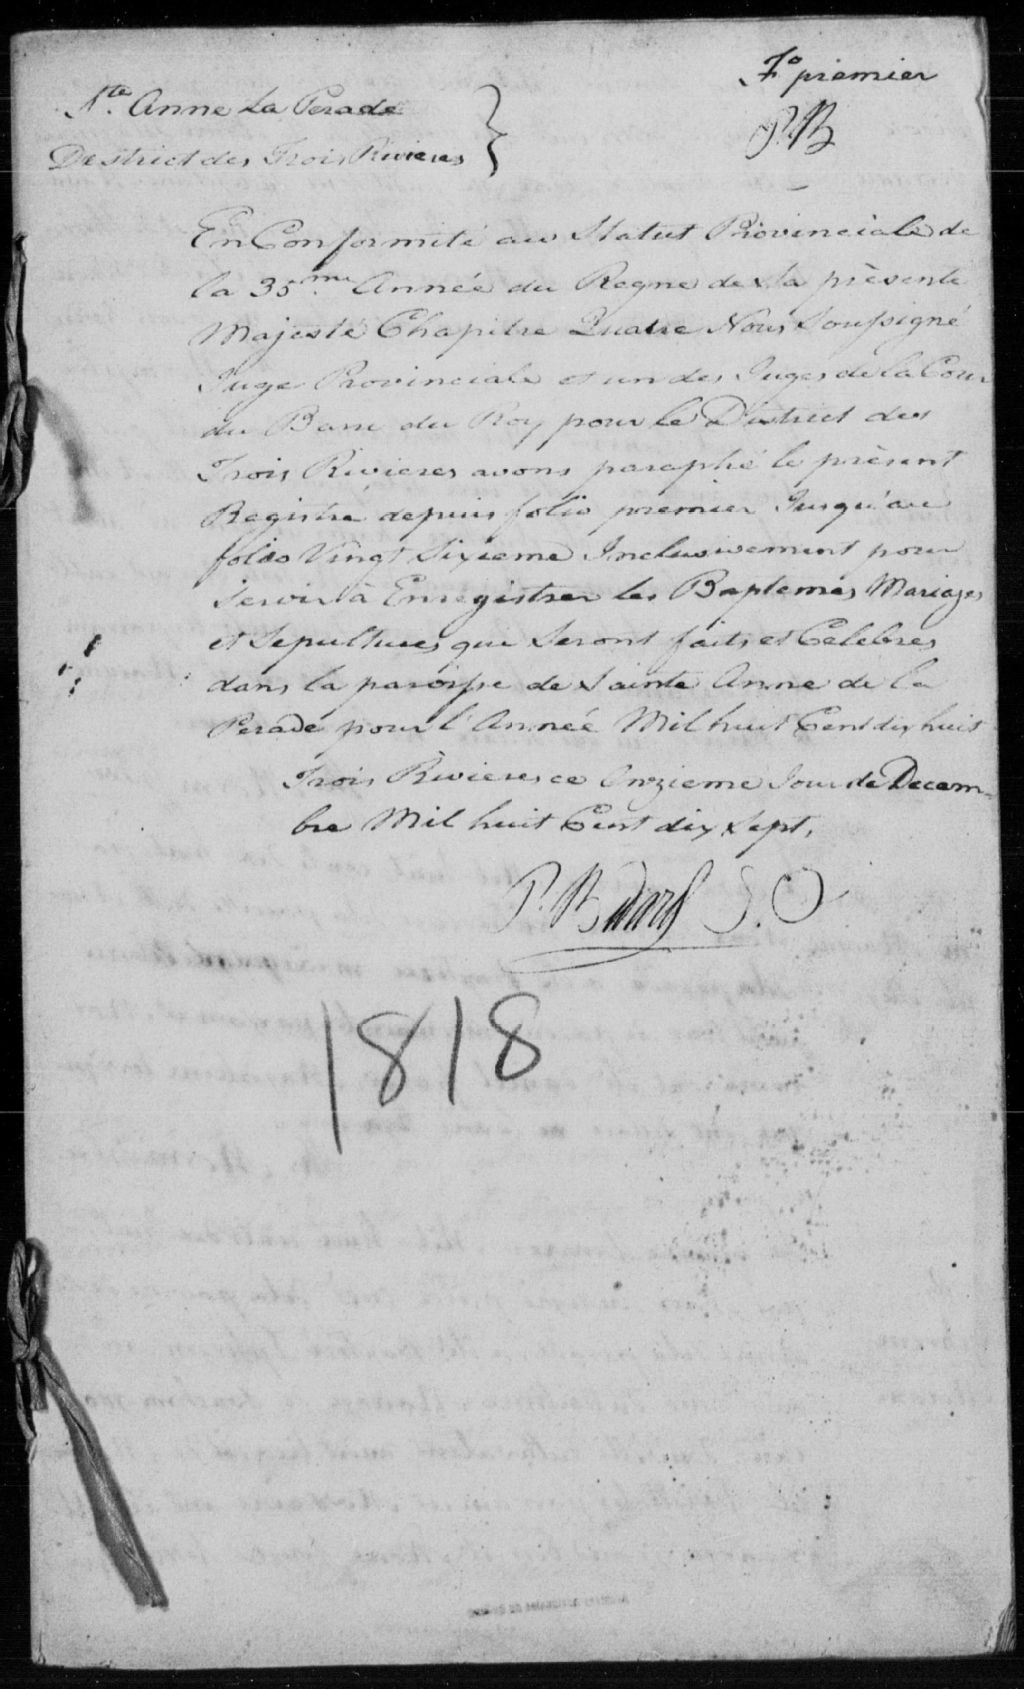 F.º premier
P.B
Ste Anne La Perade
District des Trois Rivieres
En Conformité au Statut Provinciale de
la 35.me Année du Regne de sa présente
Majesté Chapitre Quatre Nous Soussigné
Juge Provinciale et un des Juges de la Cour
du Banc du Roy pour le District des
Trois Rivieres avons paraphé le présent
Registre depuis folio premier Jusqu'au
folio Vingt Sixieme Inclusivement pour
Servir à Enregistrer les Baptemes Mariages
et Sepultures que Seront faits et Célébres
dans la paroisse de Sainte Anne de la
Perade pour l'Année Mil huit Cent dix huit
Trois Rivieres ce Onzieme Jour de Decem-
bre Mil huit Cent dix Sept.
P. Bedard
1818